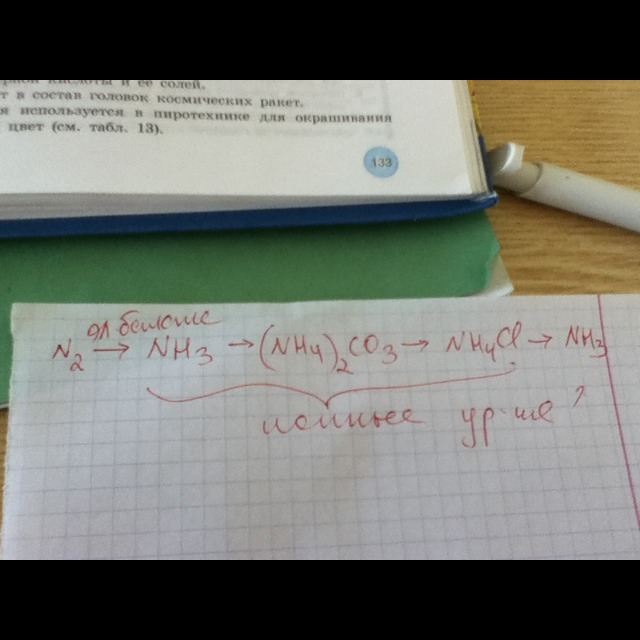 рной кислоты и её солей.
т в состав головок космических ракет.
я используется в пиротехнике для окрашивания
цвет (см. табл. 13).
133
эл баланс
N₂ → NH₃ → (NH₄)₂CO₃ → NH₄Cl → NH₃
ионные ур-ие ?